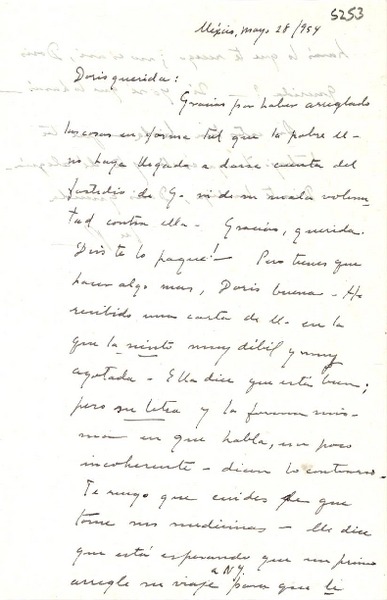 5253
México, mayo 28/954
Doris querida:
Gracias por haber arreglado
las cosas en forma tal que la pobre Ll-
no haya llegado a darse cuenta del
fastidio de G. ni de su mala volun-
tad contra ella. Gracias, querida.
Dios te lo pague! — Pero tienes que
hacer algo mas, Doris buena - He
recibido una carta de Ll. en la
que la siento muy débil y muy
agotada - Ella dice que está bien;
pero su letra y la forma mis-
ma en que habla, un poco
incoherente - dicen lo contrario.
Te ruego que cuides de que
tome sus medicinas - Me dice
que está esperando que un primo
arregle su viaje a N.Y. para que ti